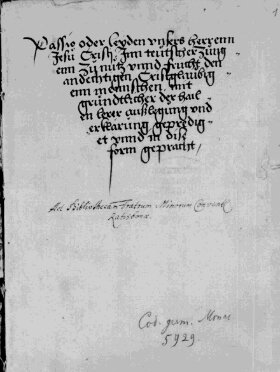 Passio oder leyden vnsers herrenn
Jesu Cristi Jnn teutscher zung
enn Zu nutz vnnd frucht den
andechtigen Cristglaubig
enn menschen mit
gründtlicher der hail
en lerer außlegung vnd
erklärung gepredig
et vnnd in diß
form gepracht
Ad Bibliothecam Fratrum Minorum Convent.
Ratisbonæ.
Cod. germ. Monac.
5929.
1